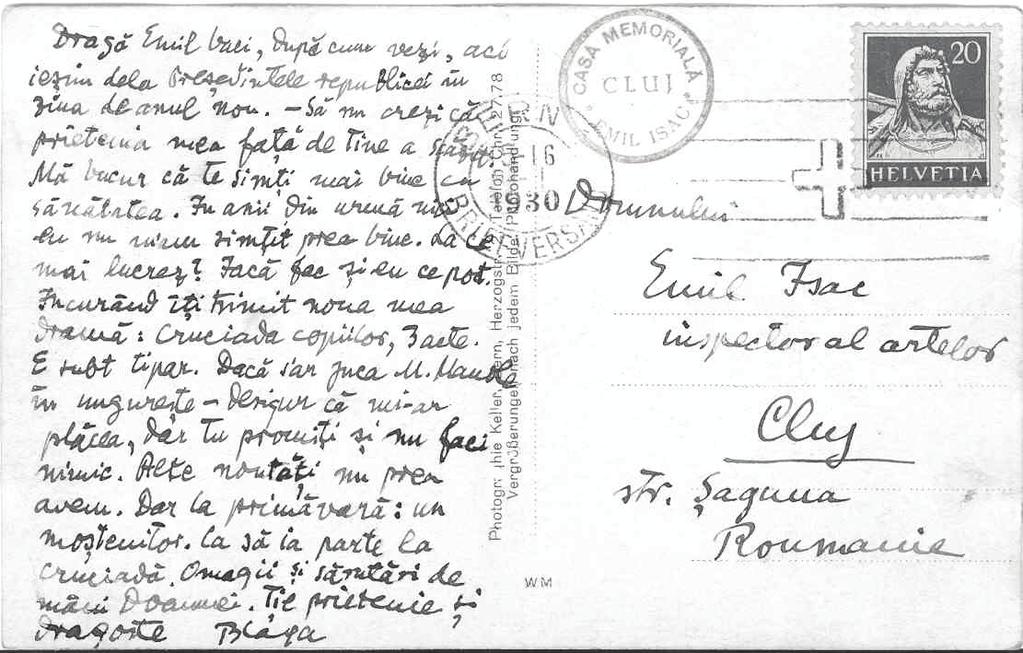 Dragă Emil baci, după cum vezi, aci
ieșim dela Președintele republicei în
ziua de anul nou. – Să nu crezi că
prietenia mea față de tine a slăbit.
Mă bucur că te simți mai bine cu
sănătatea. În anii din urmă nici
eu nu m'am simțit prea bine. La ce
mai lucrez? Iacă fac și eu ce pot.
Încurând îți trimit noua mea
dramă: Cruciada copiilor, 3 acte.
E subt tipar. Dacă s'ar juca M. Manole
în ungurește – desigur că mi-ar
plăcea, dar tu promiți și nu faci
nimic. Alte noutăți nu prea
avem. Dar la primăvară: un
moștenitor. Ca să ia parte la
cruciadă. Omagii și sărutări de
mâni Doamnei. Ție prietenie și
dragoste Blaga
Keller, Bern, Herzogstr. Telefon Chr. 27.78
Vergrößerungen nach jedem Bilde. (Photohandlung)
WM
CASA MEMORIALĂ
CLUJ
EMIL ISAC
BERN
16
1930
BRIEFVERSAND
20
HELVETIA
Domnului
Emil Isac
inspector al artelor
Cluj
str. Șaguna
Roumanie